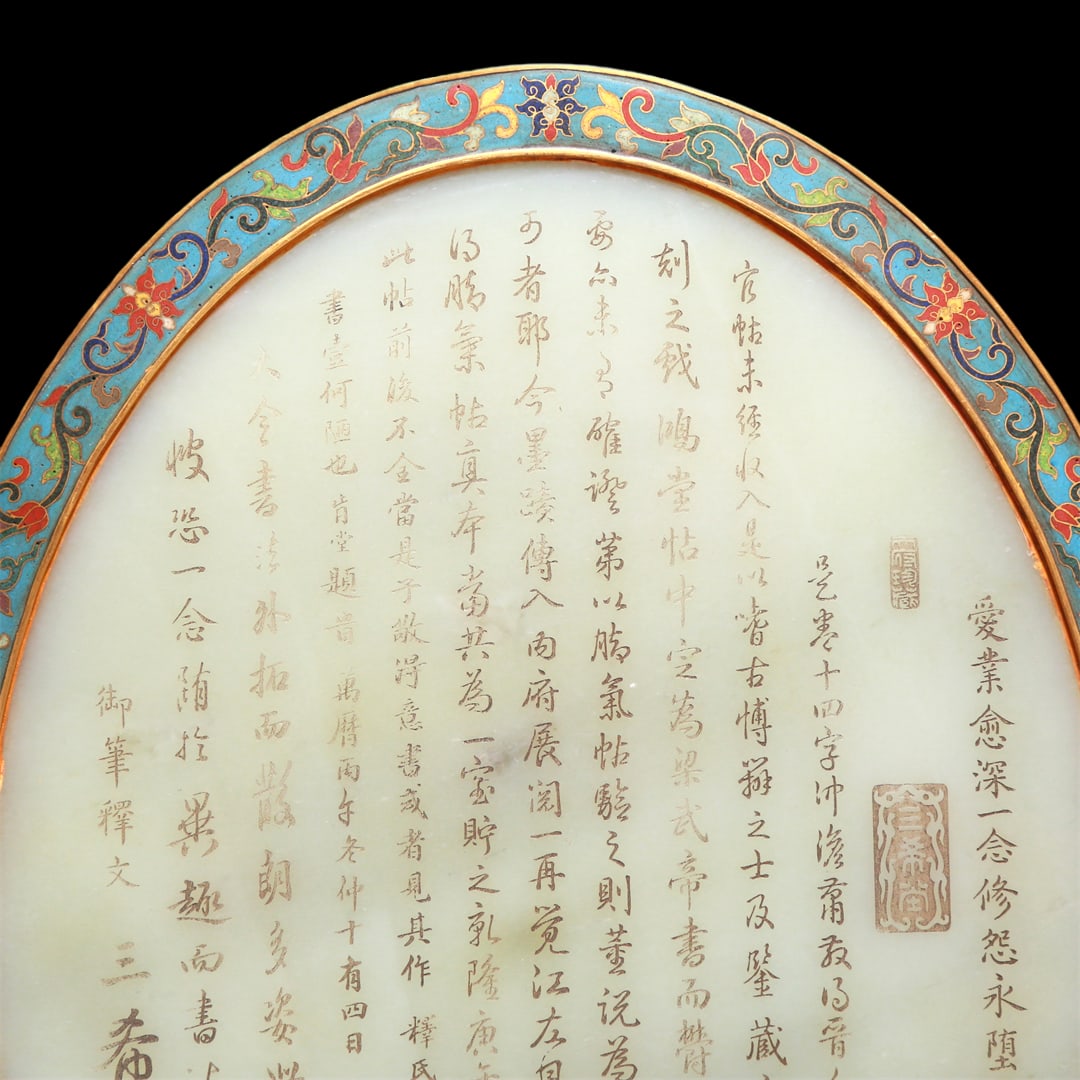 愛業愈深一念修怨永堕
三希堂
是卷十四字沖澹蕭散得晉
官帖未經收入是以嗜古博辨之士及鑒藏
刻之戲鴻堂帖中定為梁武帝書而欝
要亦未有確證第以腦氣帖驗之則董說為
可者耶今墨蹟傳入內府展閱一再覺江左自
得腦氣帖真本當共為一室貯之乾隆庚午
此帖前後不全當是子敬得意書或者見其作 釋氏
書壹何陋也肯堂題旹 萬曆丙午冬仲十有四日
大令書法外拓而散朗多姿此
帔恐一念隨於異趣而書
御筆釋文
三希